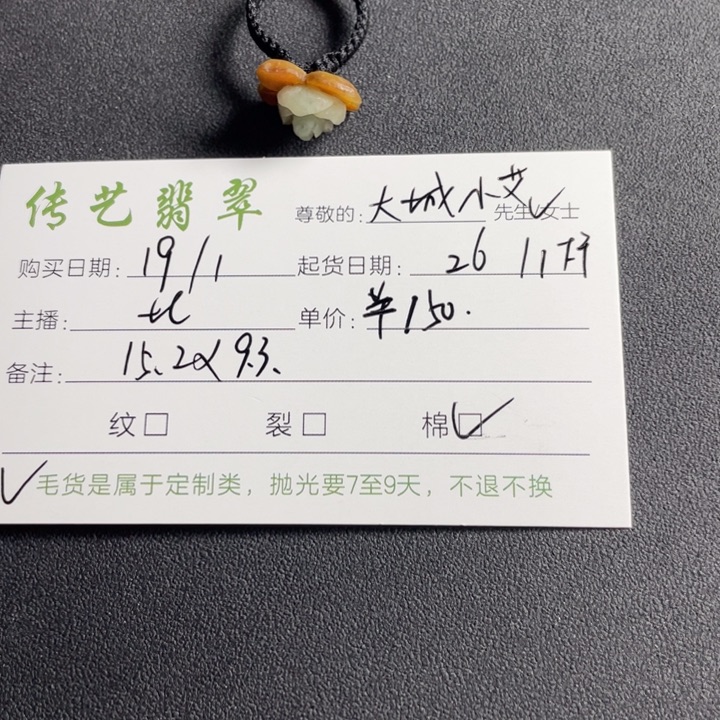 传艺翡翠 尊敬的: 大城小艾 先生/女士
购买日期: 19/1 起货日期: 26/1
主播: 单价: ¥150.
备注: 15.2×9.3.
纹□ 裂□ 棉□
毛货是属于定制类，抛光要7至9天，不退不换